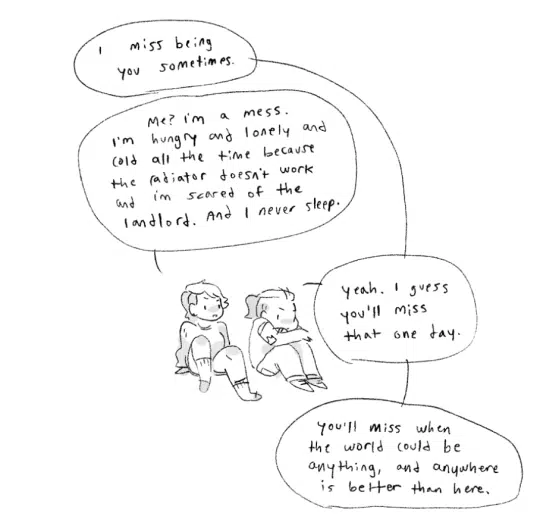 I miss being
you sometimes.
Me? I'm a mess.
I'm hungry and lonely and
cold all the time because
the radiator doesn't work
and i'm scared of the
landlord. And I never sleep.
yeah. I guess
you'll miss
that one day.
you'll miss when
the world could be
anything, and anywhere
is better than here.